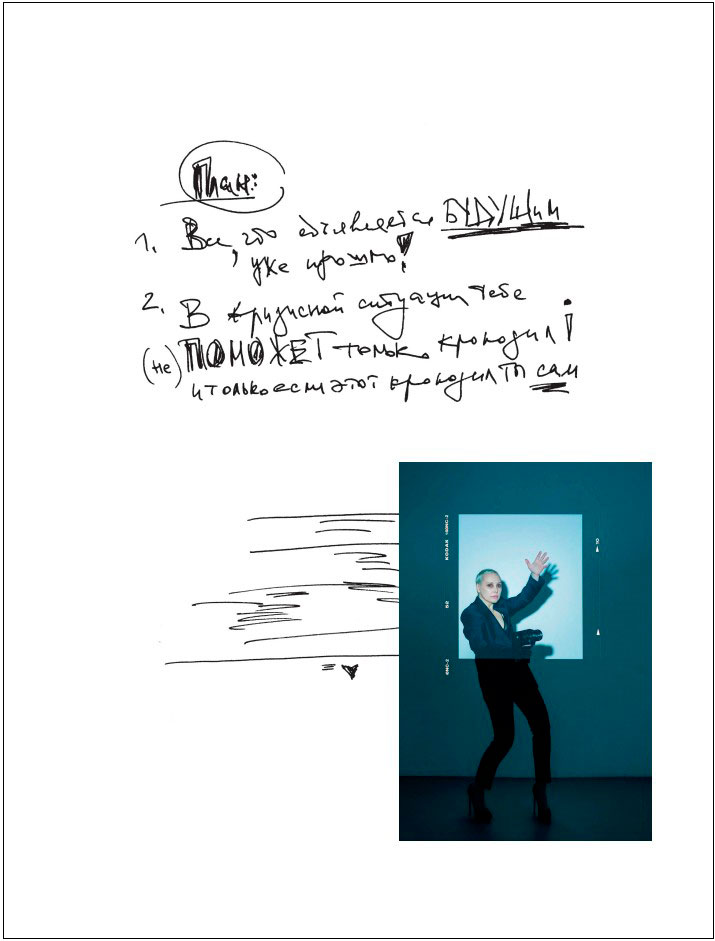 План:
1. Все, что объявляется БУДУЩИМ
уже прошло!
2. В кризисной ситуации тебе
(не) ПОМОЖЕТ только крокодил!
и только если этот крокодил ты сам
KODAK 160NC-2
52
6NC-2
10